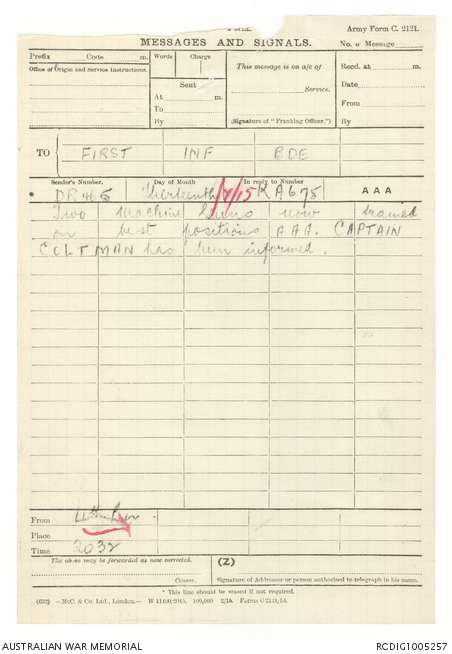 Army Form C. 2121.
MESSAGES AND SIGNALS.
No. of Message
Prefix Code m.
Words
Charge
Office of Origin and service Instructions.
Sent
At m.
To
By
This message is on a/c of
Service.
(Signature of "Franking Officer.")
Recd. at m.
Date
From
By
TO FIRST INF BDE
Sender's Number. Day of Month In reply to Number
DR 45 thirteenth /7/15 KA675 A A A
Two machine guns now trained
on best positions AAA. CAPTAIN
COLTMAN has been informed.
From
Place
Time 2032
The above may be forwarded as now corrected. (Z)
Censor. Signature of Addressor or person authorised to telegraph in his name.
* This line should be erased if not required.
McC. & Co. Ltd., London.
AUSTRALIAN WAR MEMORIAL RCDIG1005257